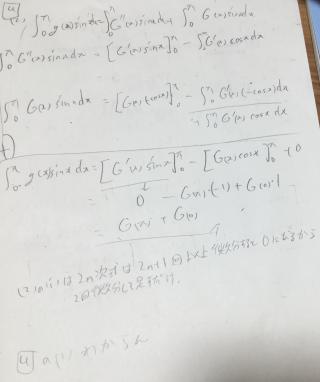 4
∫₀^π g(x)sinx dx = ∫₀^π G''(x)sinx dx + ∫₀^π G(x)sinx dx
∫₀^π G''(x)sinx dx = [G'(x)sinx]₀^π - ∫₀^π G'(x)cosx dx
∫₀^π G(x)sinx dx = [G(x)(-cosx)]₀^π - ∫₀^π G'(x)(-cosx)dx
+ ∫₀^π G'(x)cosx dx
+)
∫₀^π g(x)sinx dx = [G'(x)sinx]₀^π - [G(x)cosx]₀^π + 0
↓
0 - G(π)(-1) + G(0)・1
= G(π) + G(0)
2n次式は2n+1回以上微分すると0になるから
2回微分して
4